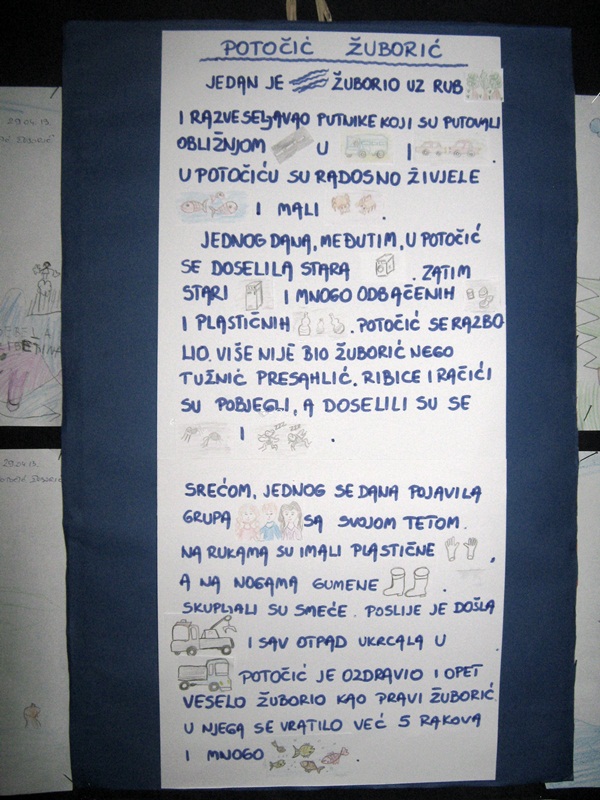 POTOČIĆ ŽUBORIĆ
JEDAN JE ŽUBORIO UZ RUB
I RAZVESELJAVAO PUTNIKE KOJI SU PUTOVALI
OBLIŽNJOM U I .
U POTOČIĆU SU RADOSNO ŽIVJELE
I MALI .
JEDNOG DANA, MEĐUTIM, U POTOČIĆ
SE DOSELILA STARA . ZATIM
STARI I MNOGO ODBAČENIH
I PLASTIČNIH . POTOČIĆ SE RAZBO
LIO. VIŠE NIJE BIO ŽUBORIĆ NEGO
TUŽNIĆ PRESAHLIĆ. RIBICE I RAČIĆI
SU POBJEGLI, A DOSELILI SU SE
I .
SREĆOM, JEDNOG SE DANA POJAVILA
GRUPA SA SVOJOM TETOM.
NA RUKAMA SU IMALI PLASTIČNE ,
A NA NOGAMA GUMENE .
SKUPLJALI SU SMEĆE. POSLIJE JE DOŠLA
I SAV OTPAD UKRCALA U
POTOČIĆ JE OZDRAVIO I OPET
VESELO ŽUBORIO KAO PRAVI ŽUBORIĆ.
U NJEGA SE VRATILO VEĆ 5 RAKOVA
I MNOGO .
29.04.13.
29.04.13.